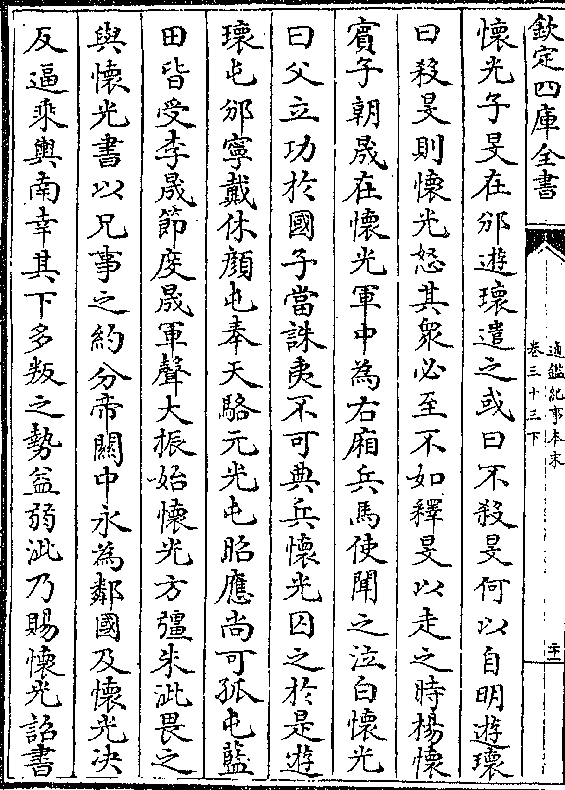 欽定四庫全書
通鑑紀事本末
卷三十三下
二十一
懷光子旻在邠遊瓌遣之或曰不殺旻何以自明遊瓌
曰殺旻則懷光怒其衆必至不如釋旻以走之時楊懷
賓子朝晟在懷光軍中為右廂兵馬使聞之泣白懷光
曰父立功於國子當誅夷不可典兵懷光囚之於是遊
瓌屯邠寧戴休顔屯奉天駱元光屯昭應尚可孤屯藍
田皆受李晟節度晟軍聲大振始懷光方彊朱泚畏之
與懷光書以兄事之約分帝關中永為鄰國及懷光决
反逼乘輿南幸其下多叛之勢益弱泚乃賜懷光詔書